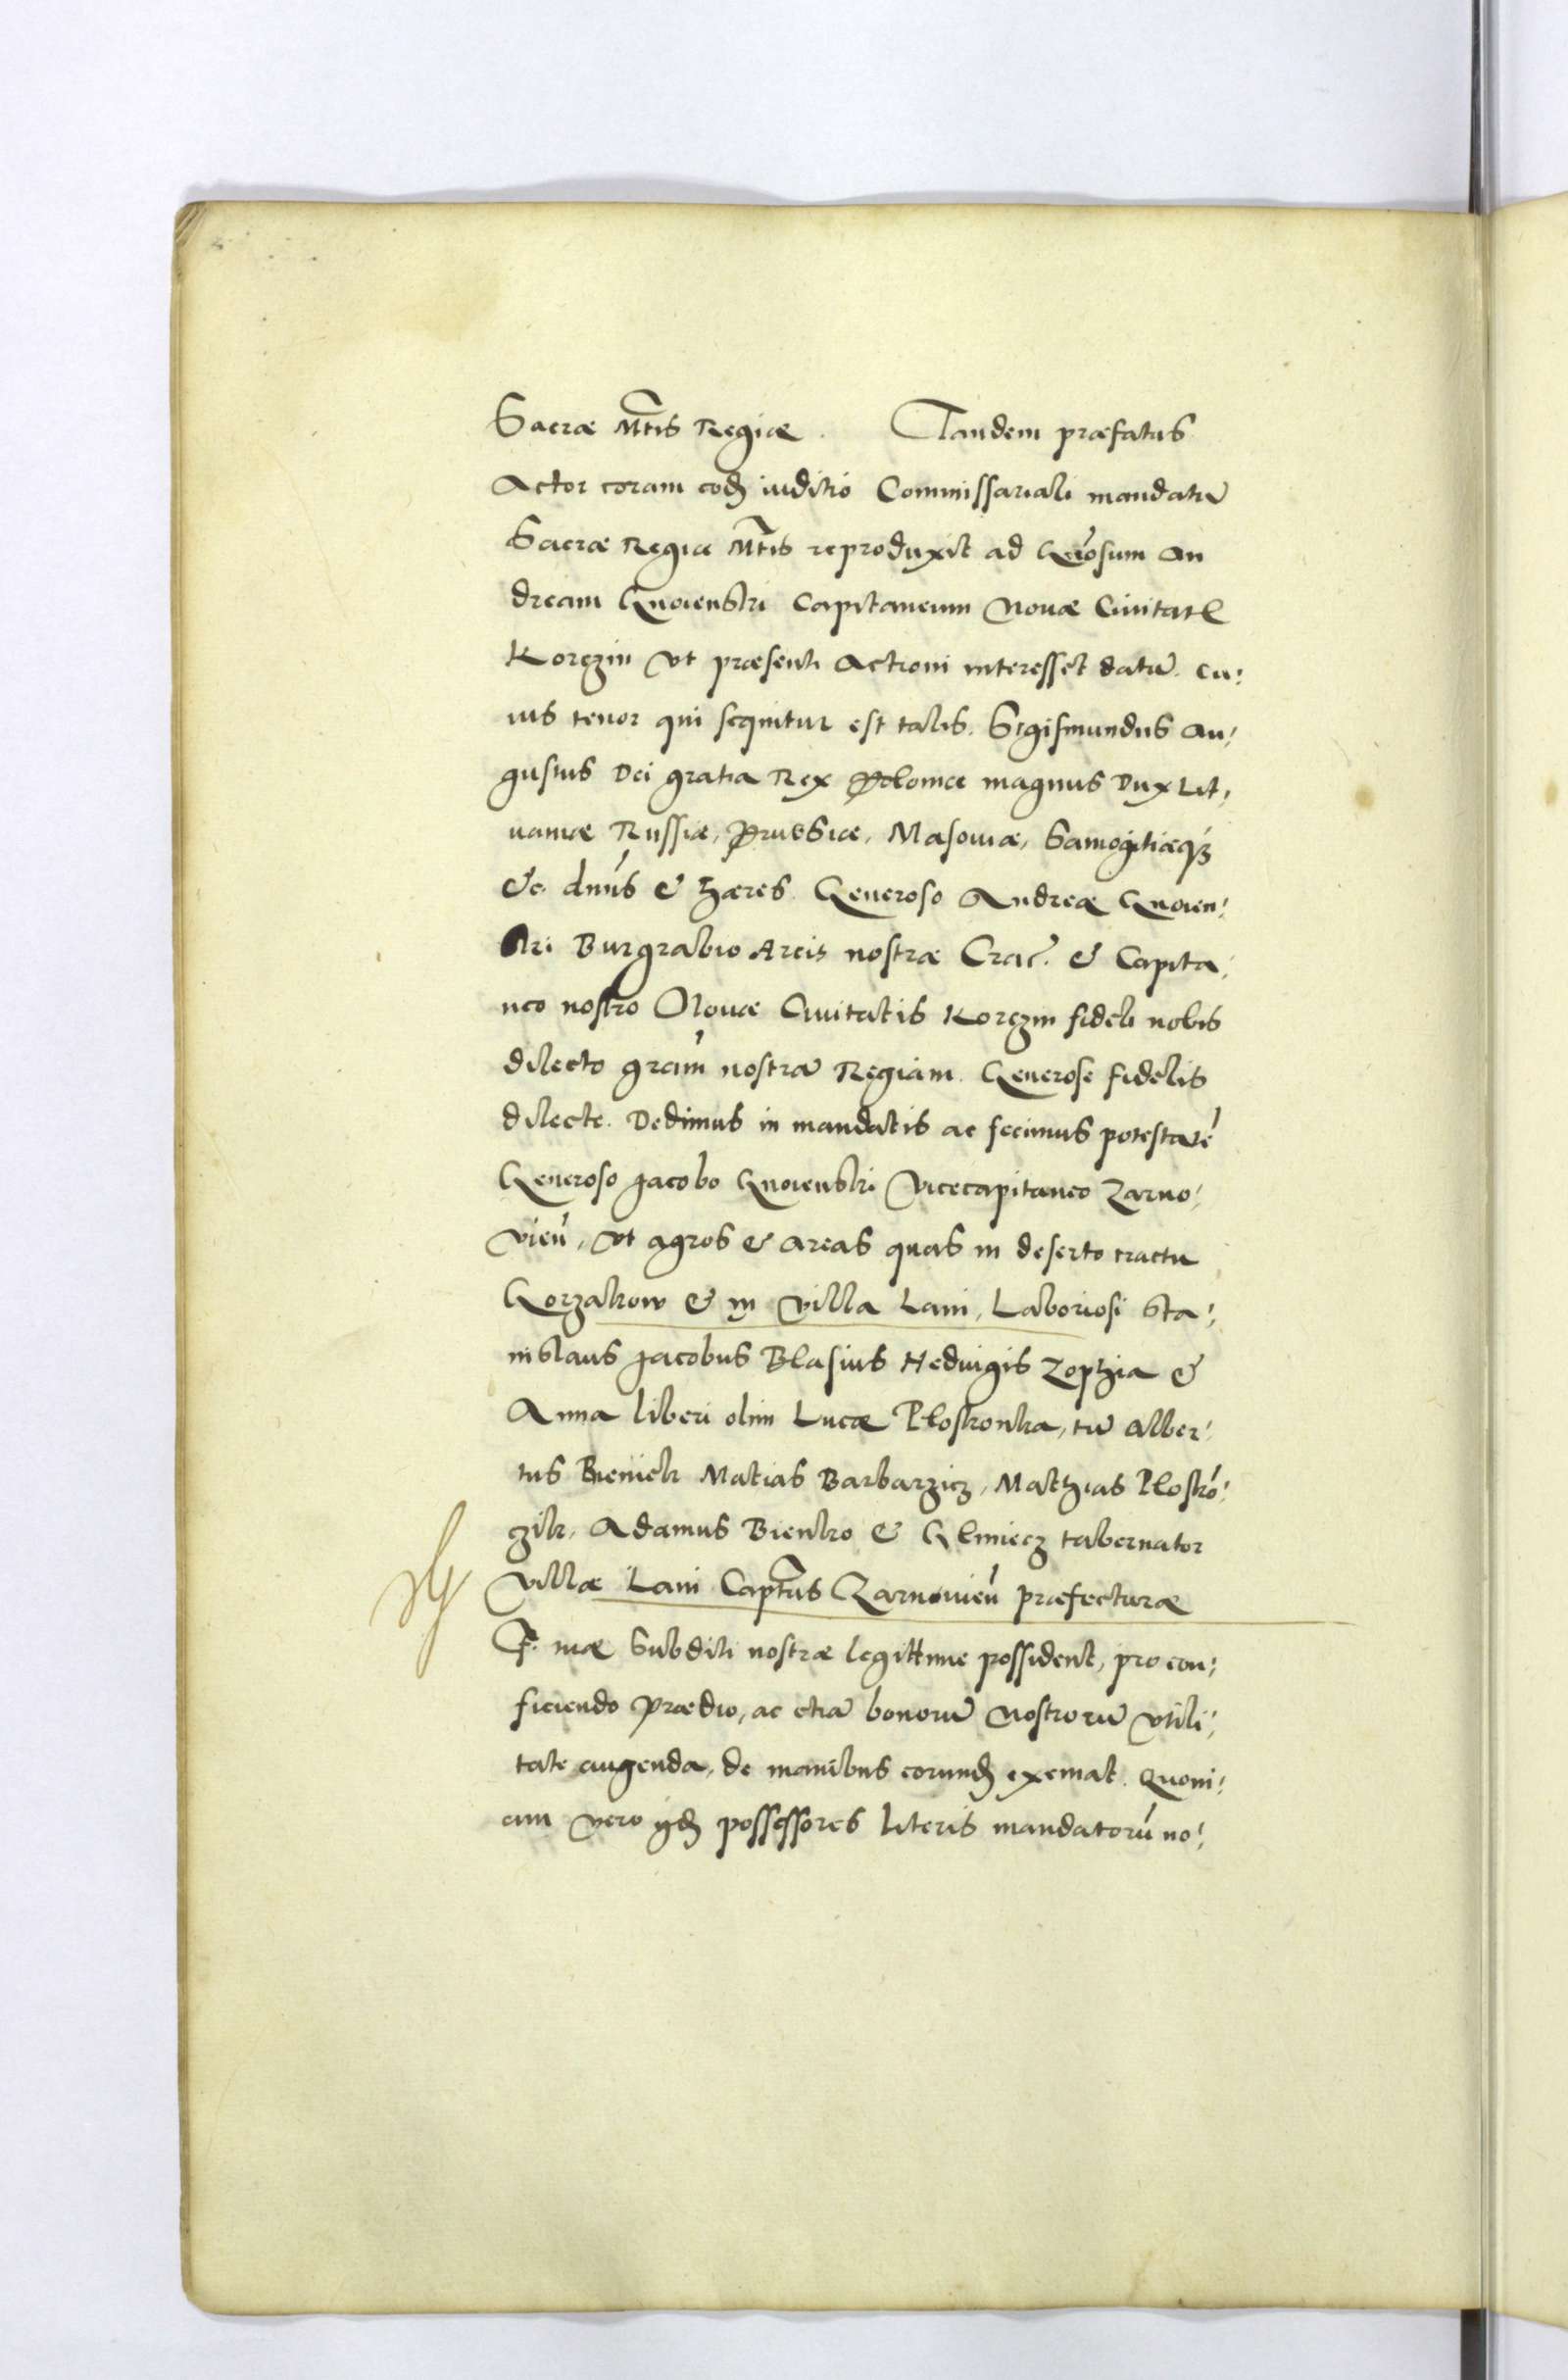 Sacræ Mtis Regiæ. Tandem præfatus
Actor coram eod iuditio Commissariali mandatũ
Sacræ Regiæ Mtis reproduxit ad Gñosum An
dream Gnoienski Capitaneum Novæ Civitatis
Korczin vt præsenti actioni interesset datũ. cu:
ius tenor qui sequitur est talis. Sigismundus Au:
gustus Dei gratia Rex Poloniæ magnus Dux Lit,
uaniæ Russiæ, Prussiæ, Masouiæ, Samogitiæq3
&c. dnũs & hæres. Generoso Andreæ Gnoien:
ski Burgrabio Arcis nostræ Crac. & Capita:
neo nostro Nouæ Ciuitatis Korczin fideli nobis
dilecto gram̃ nostrã Regiam. Generose fidelis
dilecte. Dedimus in mandatis ac fecimus potestatẽ
Generoso Jacobo Gnoienski Vicecapitaneo Zarno:
vieñ, vt agros & areas quas in deserto tractu
Gorzakow & in villa Lani, Laboriosi Sta:
nislaus Jacobus Blasius Hedvigis Zophia &
Anna liberi olim Lucæ Ploskonka, tũ Alber:
tus Bieniek Matias Barbarzicz, Mathias Ploskó:
czik, Adamus Bienko & Klimecz tabernator
villæ Lani Captus Zarnovieñ præfecturæ
F. tuæ subditi nostræ legittime possident, pro con:
ficiendo prædio, ac etiã bonorũ nostrorũ vtili:
tate augenda, de manibus eorund eximat. Quoni:
am vero ijd possessores literis mandatorũ no: